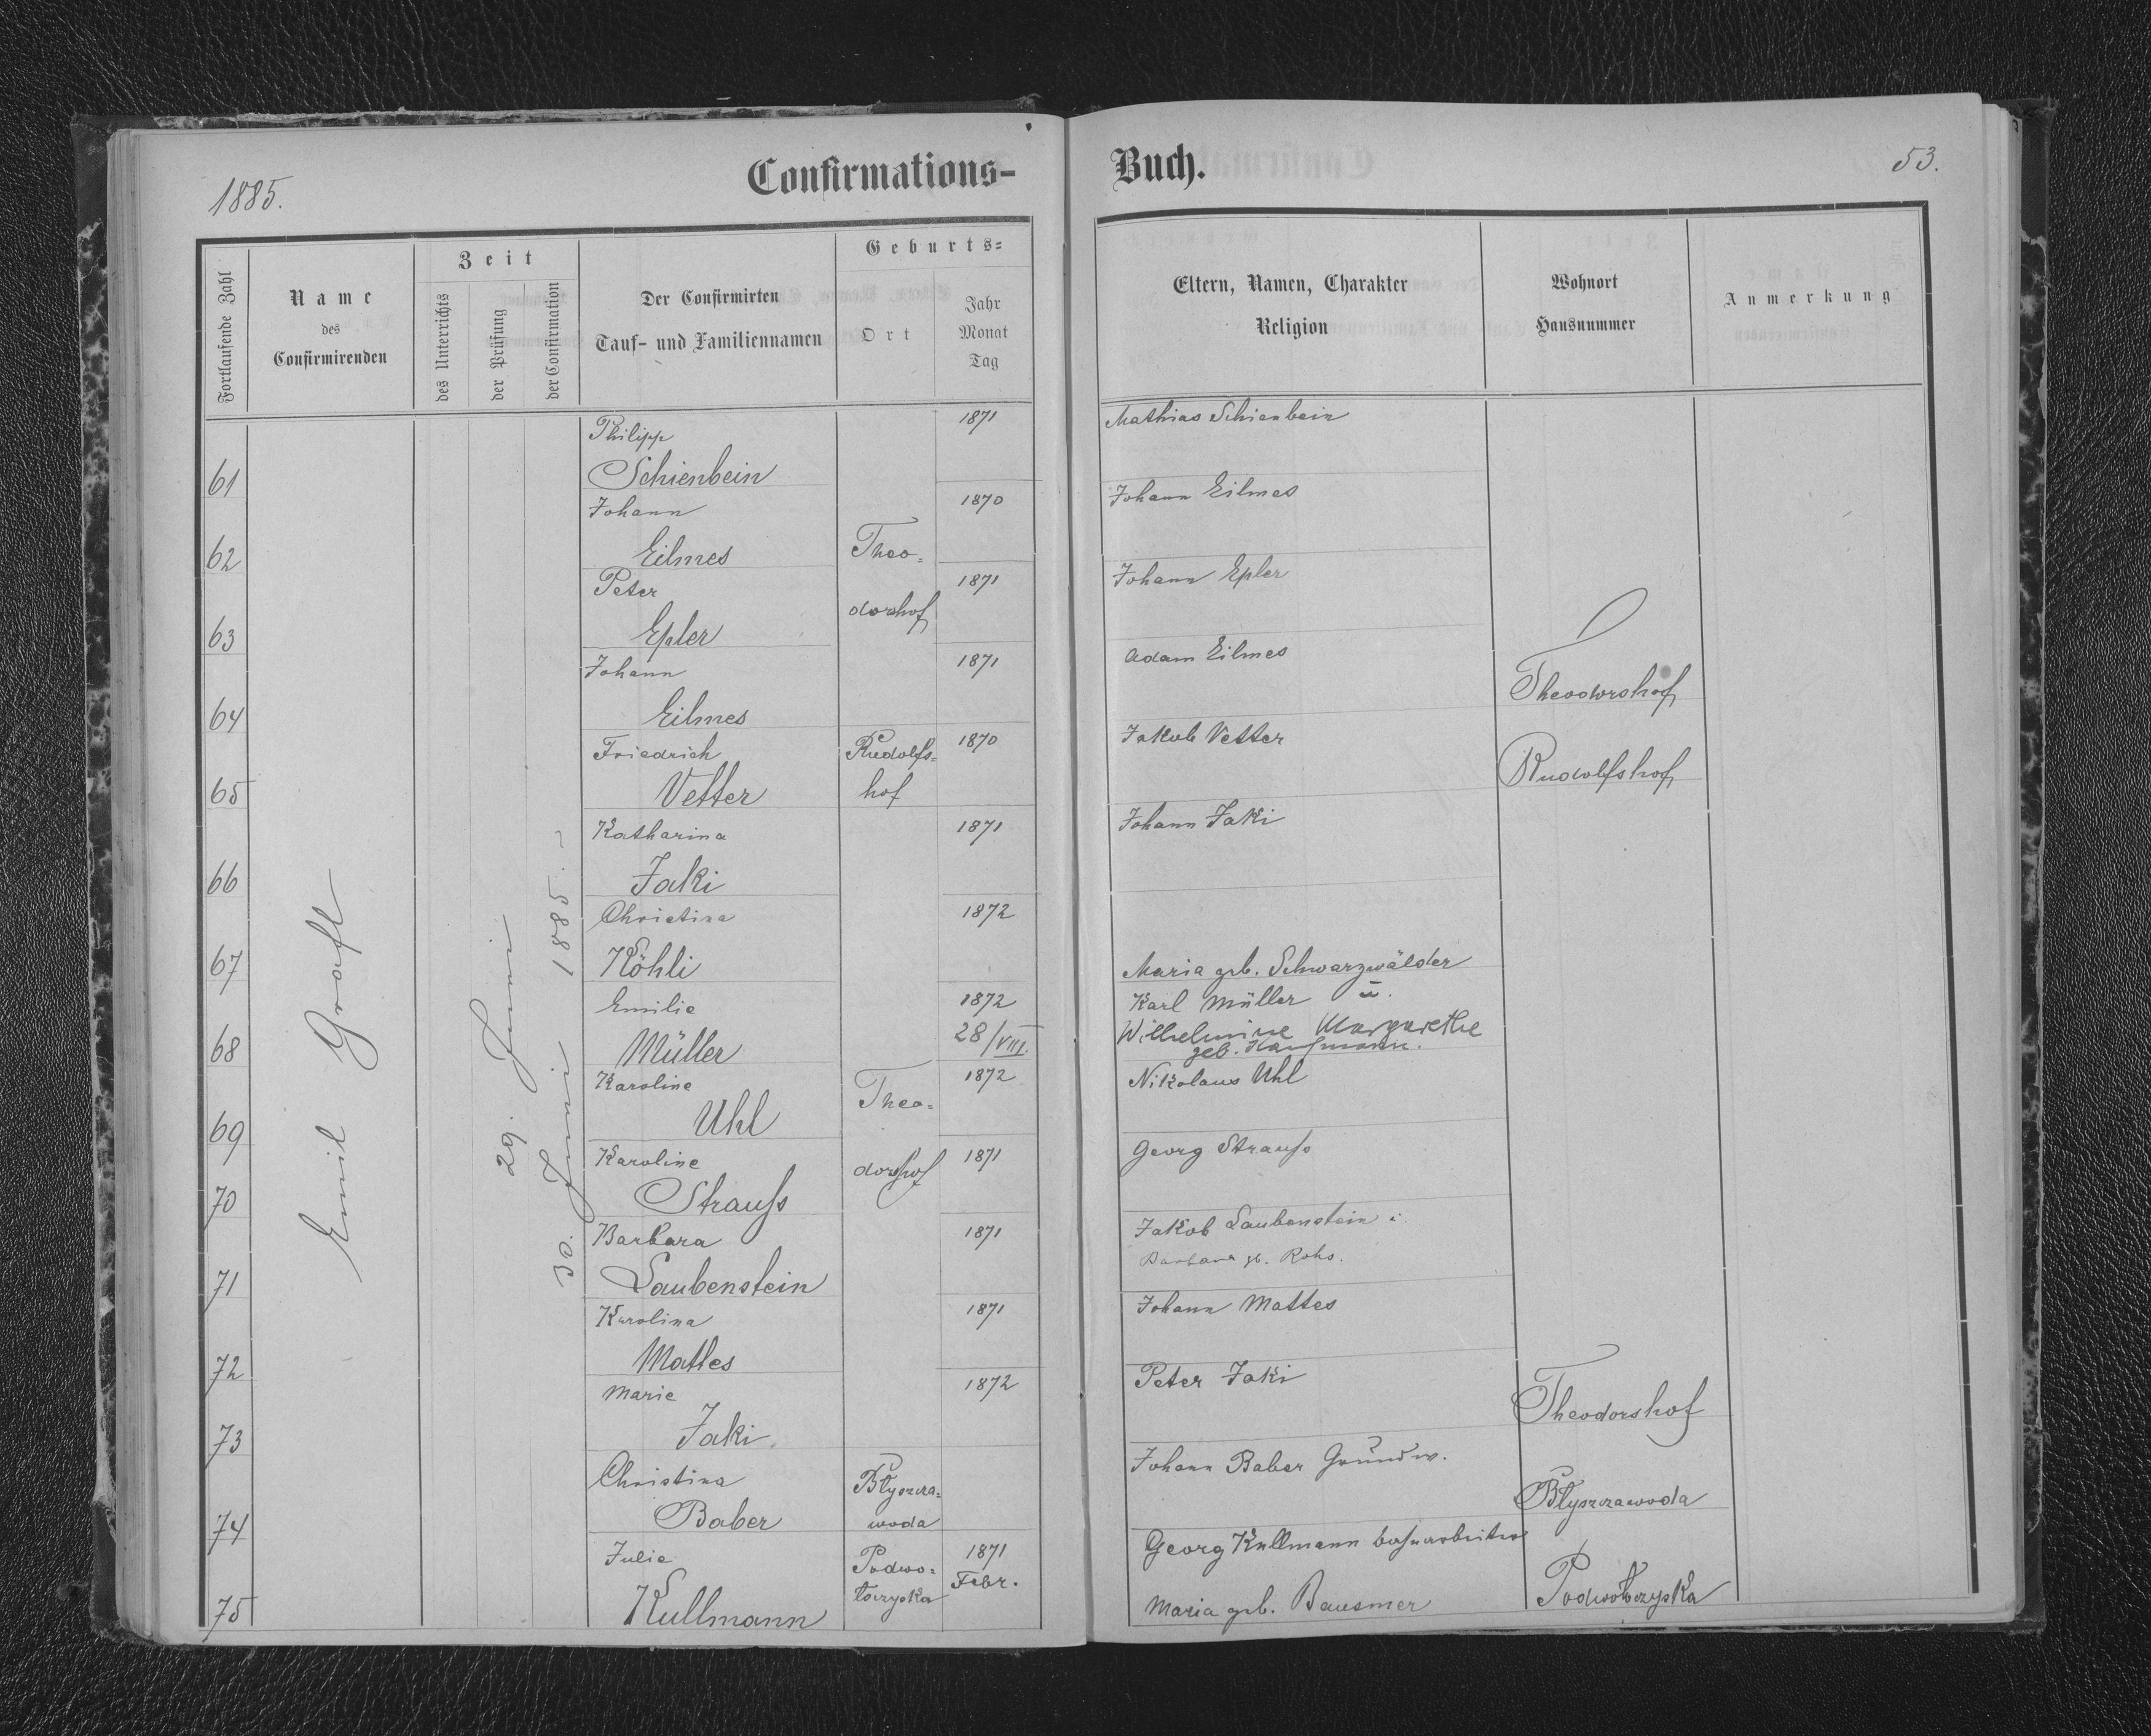 1885.
Confirmations-
Buch.
53.
Fortlaufende Zahl
Name
des
Confirmirenden
Zeit
des Unterrichts
der Prüfung
der Confirmation
Der Confirmirten
Tauf- und Familiennamen
Geburts=
Ort
Jahr
Monat
Tag
Eltern, Namen, Charakter
Religion
Wohnort
Hausnummer
Anmerkung
Emil Grafl
29. Juni
30. Juni 1885. -
61
Philipp
Schienbein
1871
Mathias Schienbein
62
Johann
Eilmes
Theo=
1870
Johann Eilmes
63
Peter
Epler
dorshof
1871
Johann Epler
64
Johann
Eilmes
1871
Adam Eilmes
Theodorshof
65
Friedrich
Vetter
Rudolfs=
hof
1870
Jakob Vetter
Rudolfshof
66
Katharina
Jaki
1871
Johann Jaki
67
Christina
Köhli
1872
Maria geb. Schwarzwälder
68
Emilie
Müller
1872
28/VIII.
Karl Müller u.
Wilhelmine Margarethe
geb. Kaufmann.
69
Karoline
Uhl
Theo=
1872
Nikolaus Uhl
70
Karoline
Strauß
dorshof
1871
Georg Strauß
71
Barbara
Laubenstein
1871
Jakob Laubenstein
Barbara gb. Rohs.
72
Karolina
Mattes
1871
Johann Mattes
73
Marie
Jaki
1872
Peter Jaki
Theodorshof
74
Christina
Baber
Błyszcza=
woda
Johann Baber Grundw.
Błyszczawoda
75
Julie
Kullmann
Podwo=
łoczyska
1871
Febr.
Georg Kullmann
Maria geb. Bausmer
Podwołoczyska